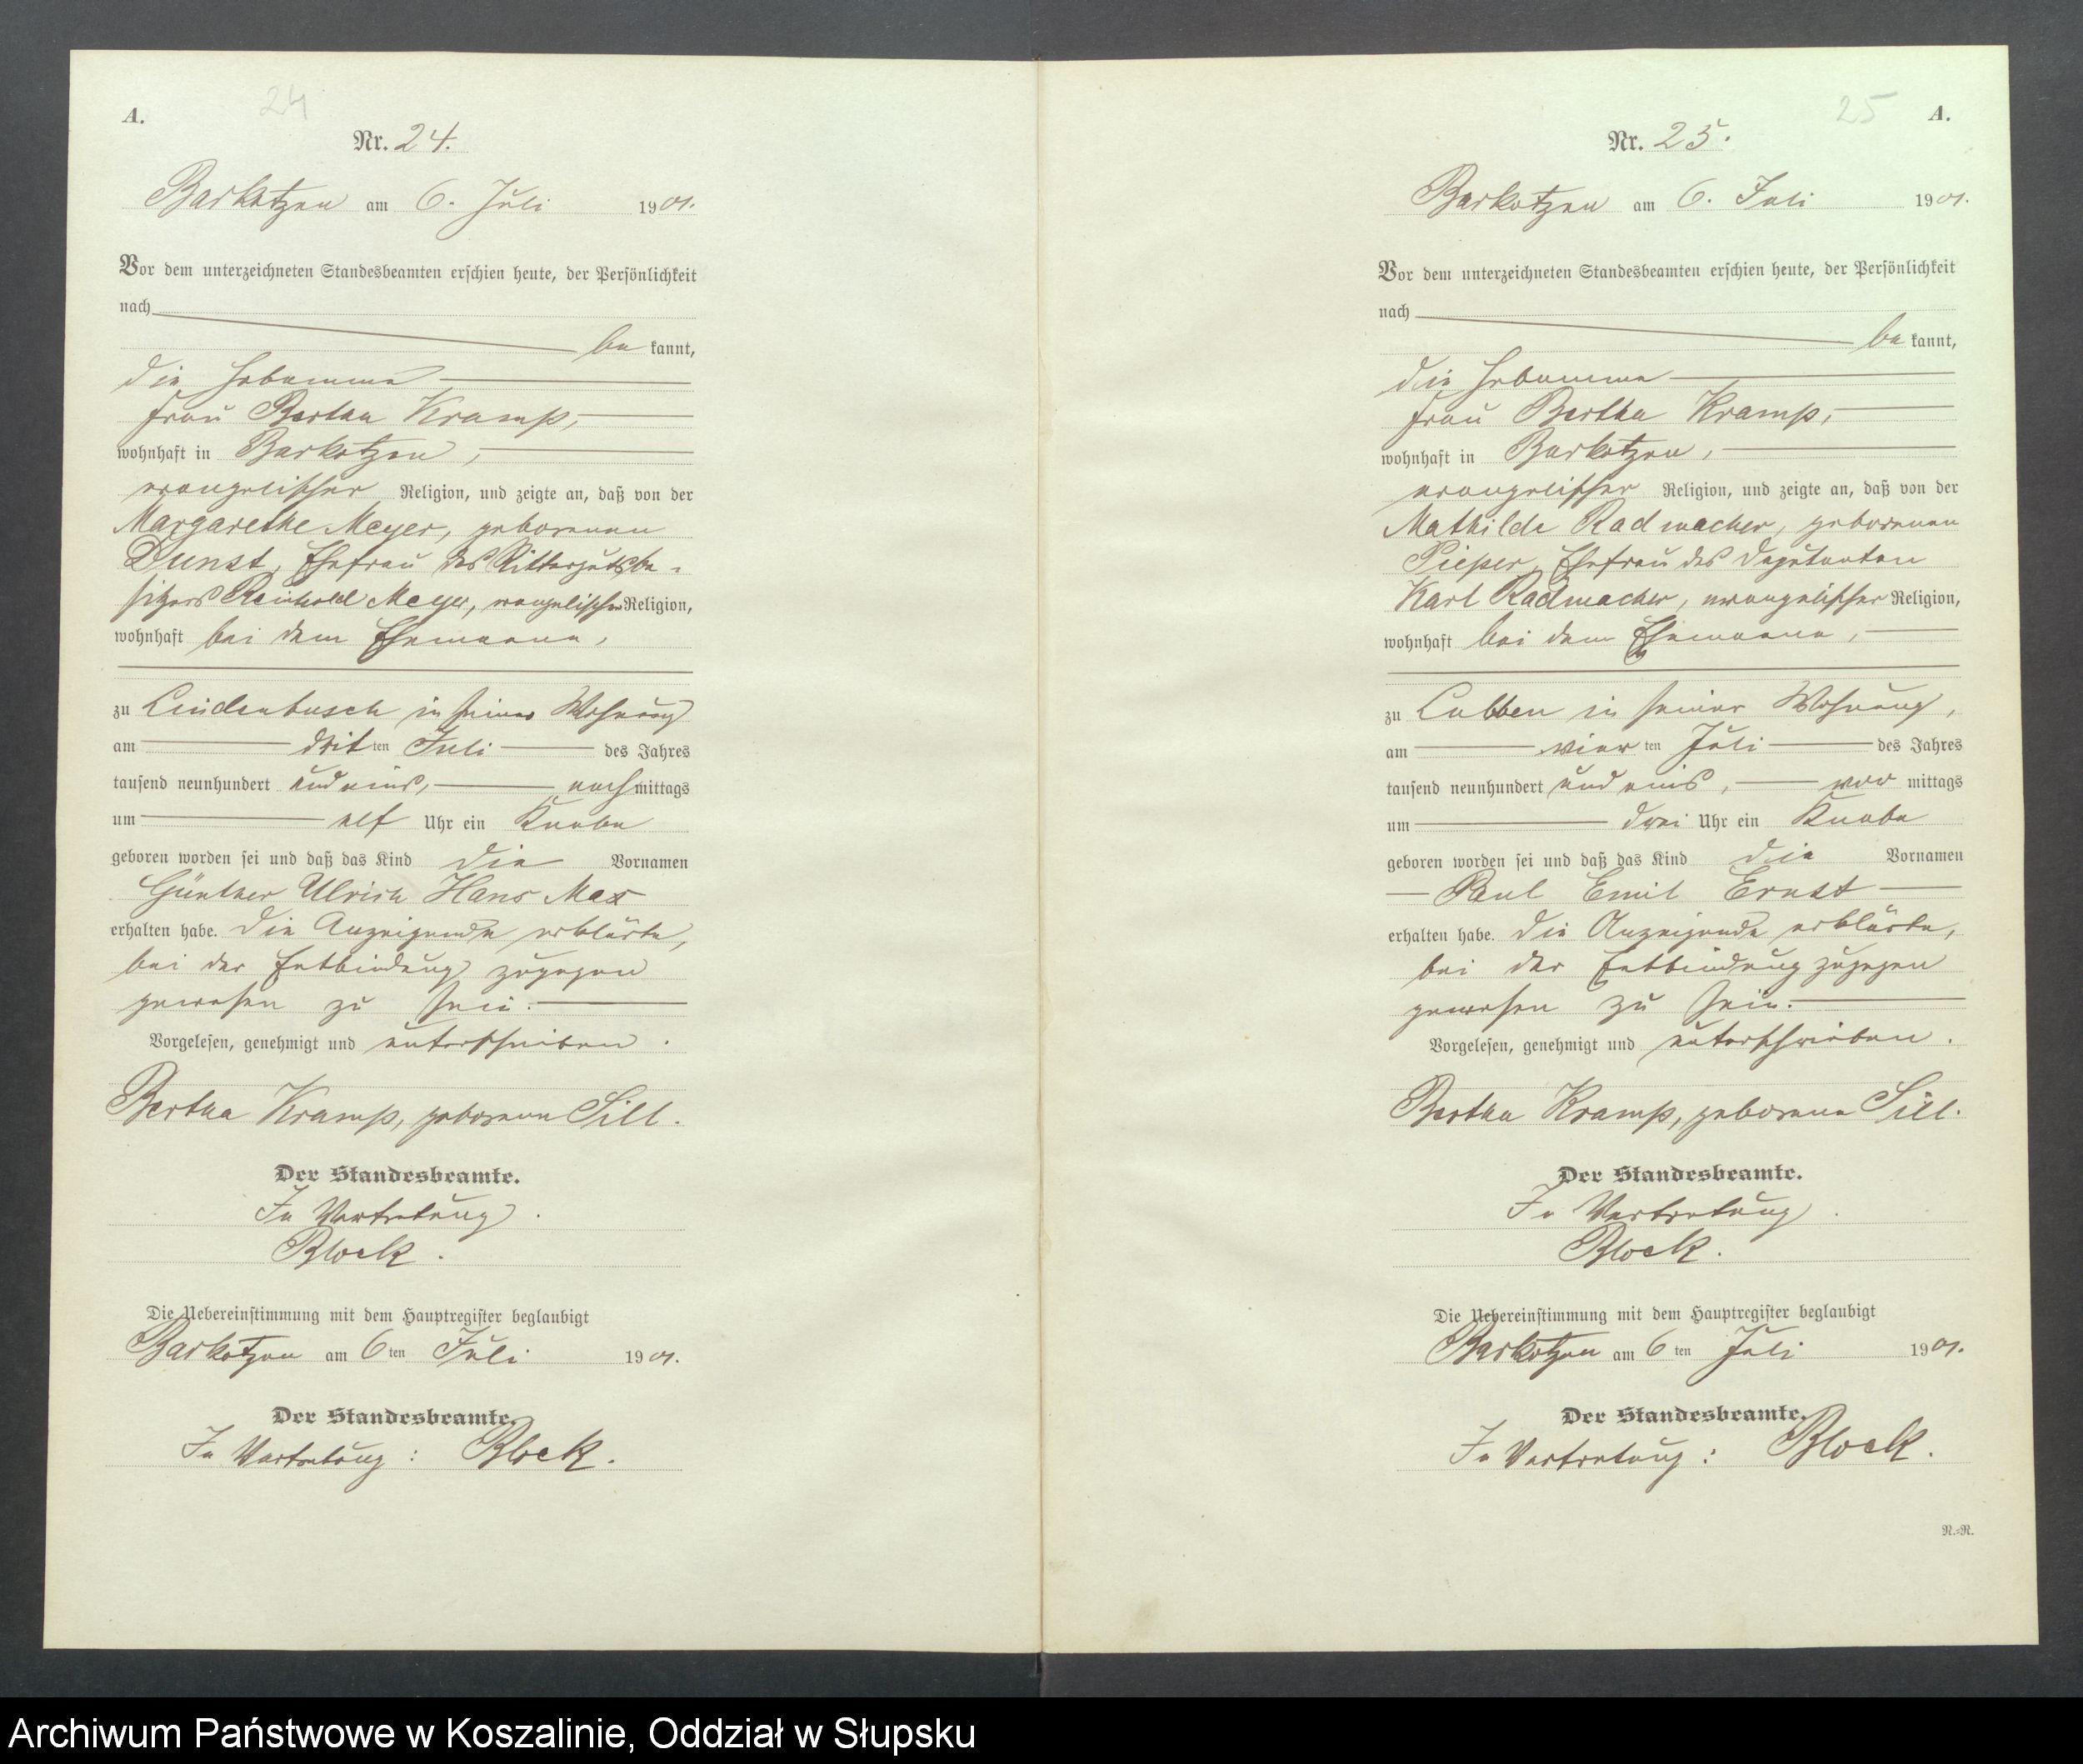 24
A.
Nr. 24.
Barkotzen am 6. Juli 1901.
Vor dem unterzeichneten Standesbeamten erschien heute, der Persönlichkeit
nach
be kannt,
die Hebamme
Frau Bertha Kramp,
wohnhaft in Barkotzen,
evangelischer Religion, und zeigte an, daß von der
Margarethe Meyer, geborenen
Dunst, Ehefrau des Rittergutsbe-
sitzers Reinhold Meyer, evangelischer Religion,
wohnhaft bei dem Ehemanne,
zu Lindenbusch in seiner Wohnung
am drit ten Juli des Jahres
tausend neunhundert und eins, nach mittags
um elf Uhr ein Knabe
geboren worden sei und daß das Kind die Vornamen
Günther Ulrich Hans Max
erhalten habe. Die Anzeigende erklärte,
bei der Entbindung zugegen
gewesen zu sein.
Vorgelesen, genehmigt und unterschrieben.
Bertha Kramp, geborene Sill.
Der Standesbeamte.
In Vertretung.
Block.
Die Uebereinstimmung mit dem Hauptregister beglaubigt
Barkotzen am 6 ten Juli 1901.
Der Standesbeamte.
In Vertretung: Block.
25
A.
Nr. 25.
Barkotzen am 6. Juli 1901.
Vor dem unterzeichneten Standesbeamten erschien heute, der Persönlichkeit
nach
be kannt,
die Hebamme
Frau Bertha Kramp,
wohnhaft in Barkotzen,
evangelischer Religion, und zeigte an, daß von der
Mathilde Radmacher, geborenen
Pieper, Ehefrau des Deputanten
Karl Radmacher, evangelischer Religion,
wohnhaft bei dem Ehemanne,
zu Lubben in seiner Wohnung,
am vier ten Juli des Jahres
tausend neunhundert und eins, vor mittags
um drei Uhr ein Knabe
geboren worden sei und daß das Kind die Vornamen
Paul Emil Ernst
erhalten habe. Die Anzeigende erklärte,
bei der Entbindung zugegen
gewesen zu sein.
Vorgelesen, genehmigt und unterschrieben.
Bertha Kramp, geborene Sill.
Der Standesbeamte.
In Vertretung.
Block.
Die Uebereinstimmung mit dem Hauptregister beglaubigt
Barkotzen am 6 ten Juli 1901.
Der Standesbeamte.
In Vertretung: Block.
R.-R.
Archiwum Państwowe w Koszalinie, Oddział w Słupsku